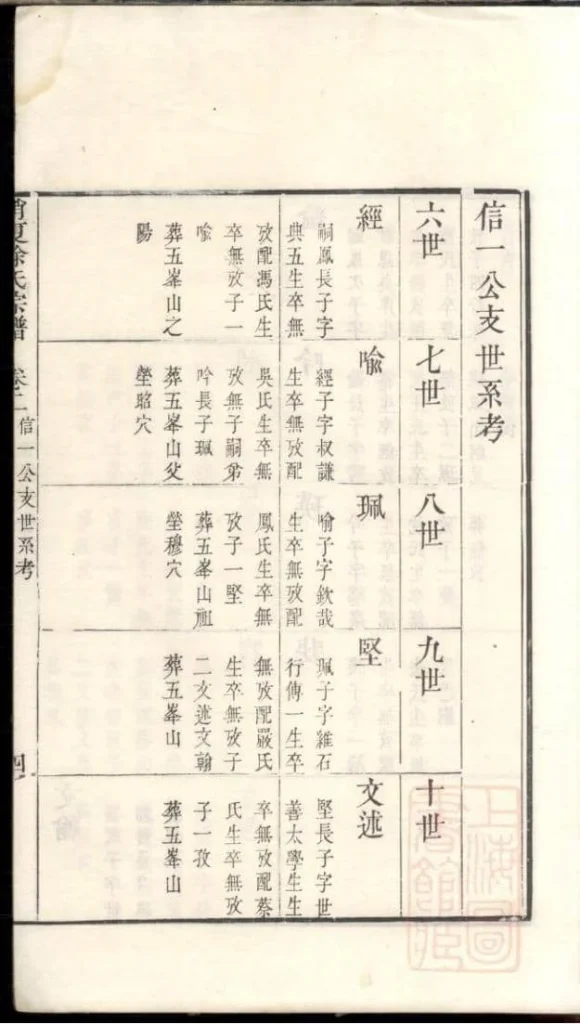 信一公支世系考
六世
七世
八世
九世
十世
經
嗣鳳長子字
典五生卒無
攷配馮氏生
卒無攷子一
喻
葬五峯山之
陽
喻
經子字叔謙
生卒無攷配
吳氏生卒無
攷無子嗣弟
吟長子珮
葬五峯山父
塋昭穴
珮
喻子字欽哉
生卒無攷配
鳳氏生卒無
攷子一堅
葬五峯山祖
塋穆穴
堅
珮子字維石
行傳一生卒
無攷配嚴氏
生卒無攷子
二文述文翰
葬五峯山
文述
堅長子字世
善太學生生
卒無攷配蔡
氏生卒無攷
子一孜
葬五峯山
消夏徐氏宗譜
卷二
信一公支世系考
四
上海圖書館藏